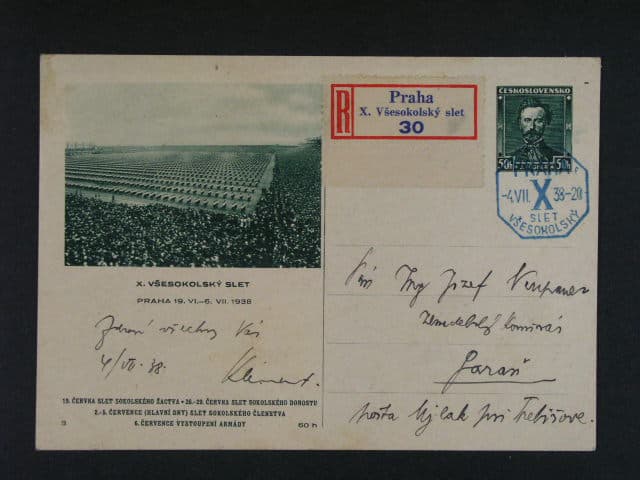 R
Praha
X. Všesokolský slet
30
ČESKOSLOVENSKO
50h 50h
PRAHA
-4.VII. X 38-20
SLET
VŠESOKOLSKÝ
X. VŠESOKOLSKÝ SLET
PRAHA 19. VI.–6. VII. 1938
Zdraví všechny Vás
4/VII. 38.
Kliment.
19. ČERVNA SLET SOKOLSKÉHO ŽACTVA • 26.-29. ČERVNA SLET SOKOLSKÉHO DOROSTU
2.-5. ČERVENCE (HLAVNÍ DNY) SLET SOKOLSKÉHO ČLENSTVA
6. ČERVENCE VYSTOUPENÍ ARMÁDY
60 h
Pán Ing Jozef
Zemedelský Komisár
Garaň
pošta Ujlak pri Trebišove.